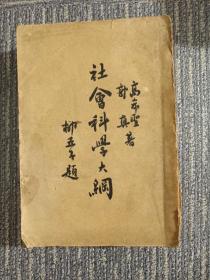 高希聖
郭真
著
社會科學大綱
柳亞子題